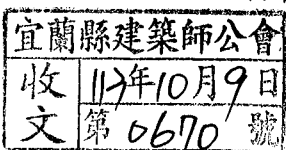 宜蘭縣建築師公會
收文
113年10月9日
第0670號